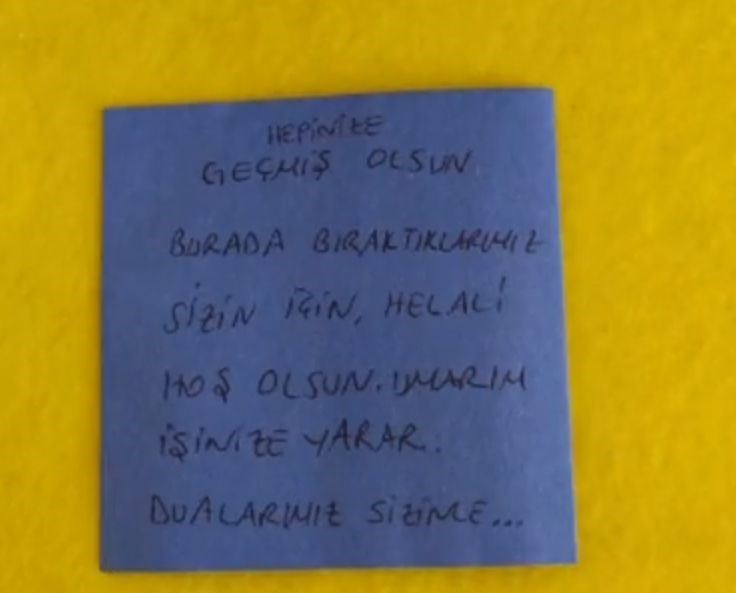 HEPİNİZE
GEÇMİŞ OLSUN
BURADA BIRAKTIKLARIMIZ
SİZİN İÇİN, HELALİ
HOŞ OLSUN. UMARIM
İŞİNİZE YARAR.
DUALARIMIZ SİZİNLE...